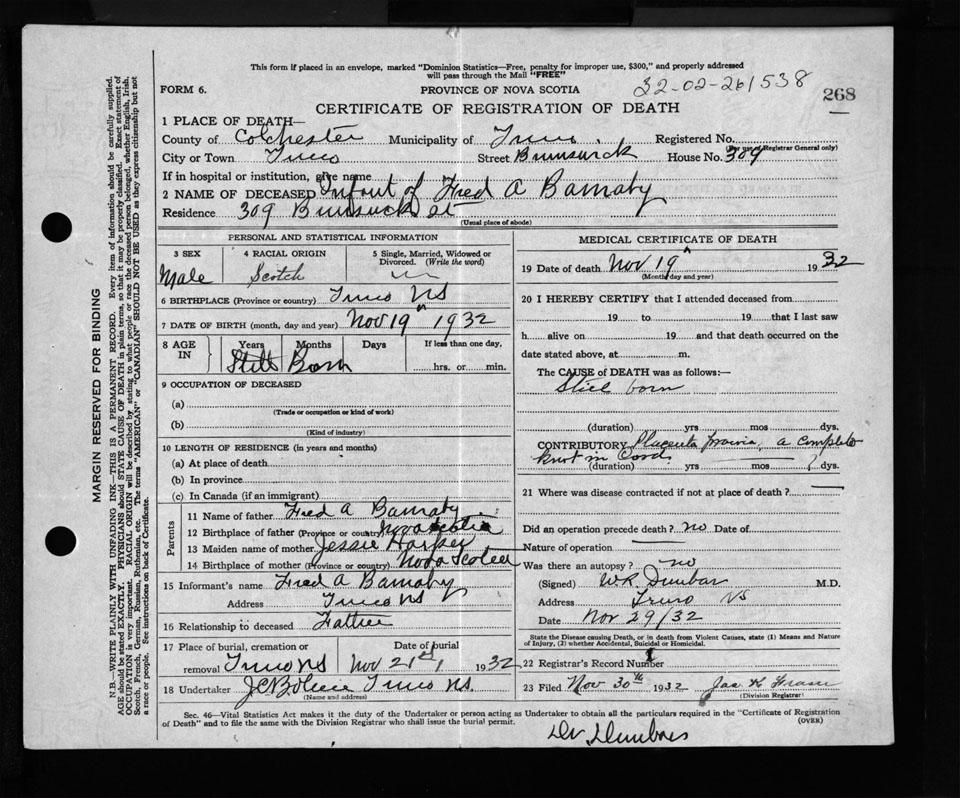 This form if placed in an envelope, marked "Dominion Statistics—Free, penalty for improper use, $300," and properly addressed
will pass through the Mail "FREE"
FORM 6. PROVINCE OF NOVA SCOTIA 32-02-261538
268
CERTIFICATE OF REGISTRATION OF DEATH
1 PLACE OF DEATH—
County of Colchester Municipality of Truro Registered No.
(For use of Registrar General only)
City or Town Truro Street Brunswick House No. 309
If in hospital or institution, give name
2 NAME OF DECEASED Infant of Fred A Barnaby
Residence 309 Brunswick St
(Usual place of abode)
PERSONAL AND STATISTICAL INFORMATION
3 SEX 4 RACIAL ORIGIN 5 Single, Married, Widowed or
Divorced. (Write the word)
Male Scotch
6 BIRTHPLACE (Province or country) Truro NS
7 DATE OF BIRTH (month, day and year) Nov 19th 1932
8 AGE IN Years Months Days If less than one day,
Still Born hrs. or min.
9 OCCUPATION OF DECEASED
(a)
(Trade or occupation or kind of work)
(b)
(Kind of industry)
10 LENGTH OF RESIDENCE (in years and months)
(a) At place of death
(b) In province
(c) In Canada (if an immigrant)
Parents
11 Name of father Fred A Barnaby
12 Birthplace of father (Province or country) Nova Scotia
13 Maiden name of mother Jessie Harper
14 Birthplace of mother (Province or country) Nova Scotia
15 Informant's name Fred A Barnaby
Address Truro NS
16 Relationship to deceased Father
17 Place of burial, cremation or Date of burial
removal Truro NS Nov 21st 1932
18 Undertaker Truro NS.
(Name and address)
MEDICAL CERTIFICATE OF DEATH
19 Date of death Nov 19th 1932
(Month, day and year)
20 I HEREBY CERTIFY that I attended deceased from
19 to 19 that I last saw
h alive on 19 and that death occurred on the
date stated above, at m.
The CAUSE of DEATH was as follows:—
Still born
(duration) yrs mos dys.
CONTRIBUTORY Placenta previa, a complete
knot in Cord.
(duration) yrs mos dys.
21 Where was disease contracted if not at place of death?
Did an operation precede death? no Date of
Nature of operation
Was there an autopsy? no
(Signed) WR Dunbar M.D.
Address Truro NS
Date Nov 29/32
State the Disease causing Death, or in death from Violent Causes, state (1) Means and Nature
of Injury, (2) whether Accidental, Suicidal or Homicidal.
22 Registrar's Record Number
23 Filed Nov 30th 1932 Jas K Fraser
(Division Registrar)
Sec. 46—Vital Statistics Act makes it the duty of the Undertaker or person acting as Undertaker to obtain all the particulars required in the "Certificate of Registration
of Death" and to file the same with the Division Registrar who shall issue the burial permit. (OVER)
Dr Dunbar
MARGIN RESERVED FOR BINDING
N.B.—WRITE PLAINLY WITH UNFADING INK—THIS IS A PERMANENT RECORD. Every item of information should be carefully supplied.
AGE should be stated EXACTLY. PHYSICIANS should STATE CAUSE OF DEATH in plain terms, so that it may be properly classified. Exact statement of
OCCUPATION is very important. RACIAL ORIGIN will be described by stating to what people or race the deceased person belonged, whether English, Irish,
Scotch, French, German, Russian, Ruthenian, etc. The terms "AMERICAN" or "CANADIAN" SHOULD NOT BE USED as they express citizenship but not
a race or people. See instructions on back of Certificate.